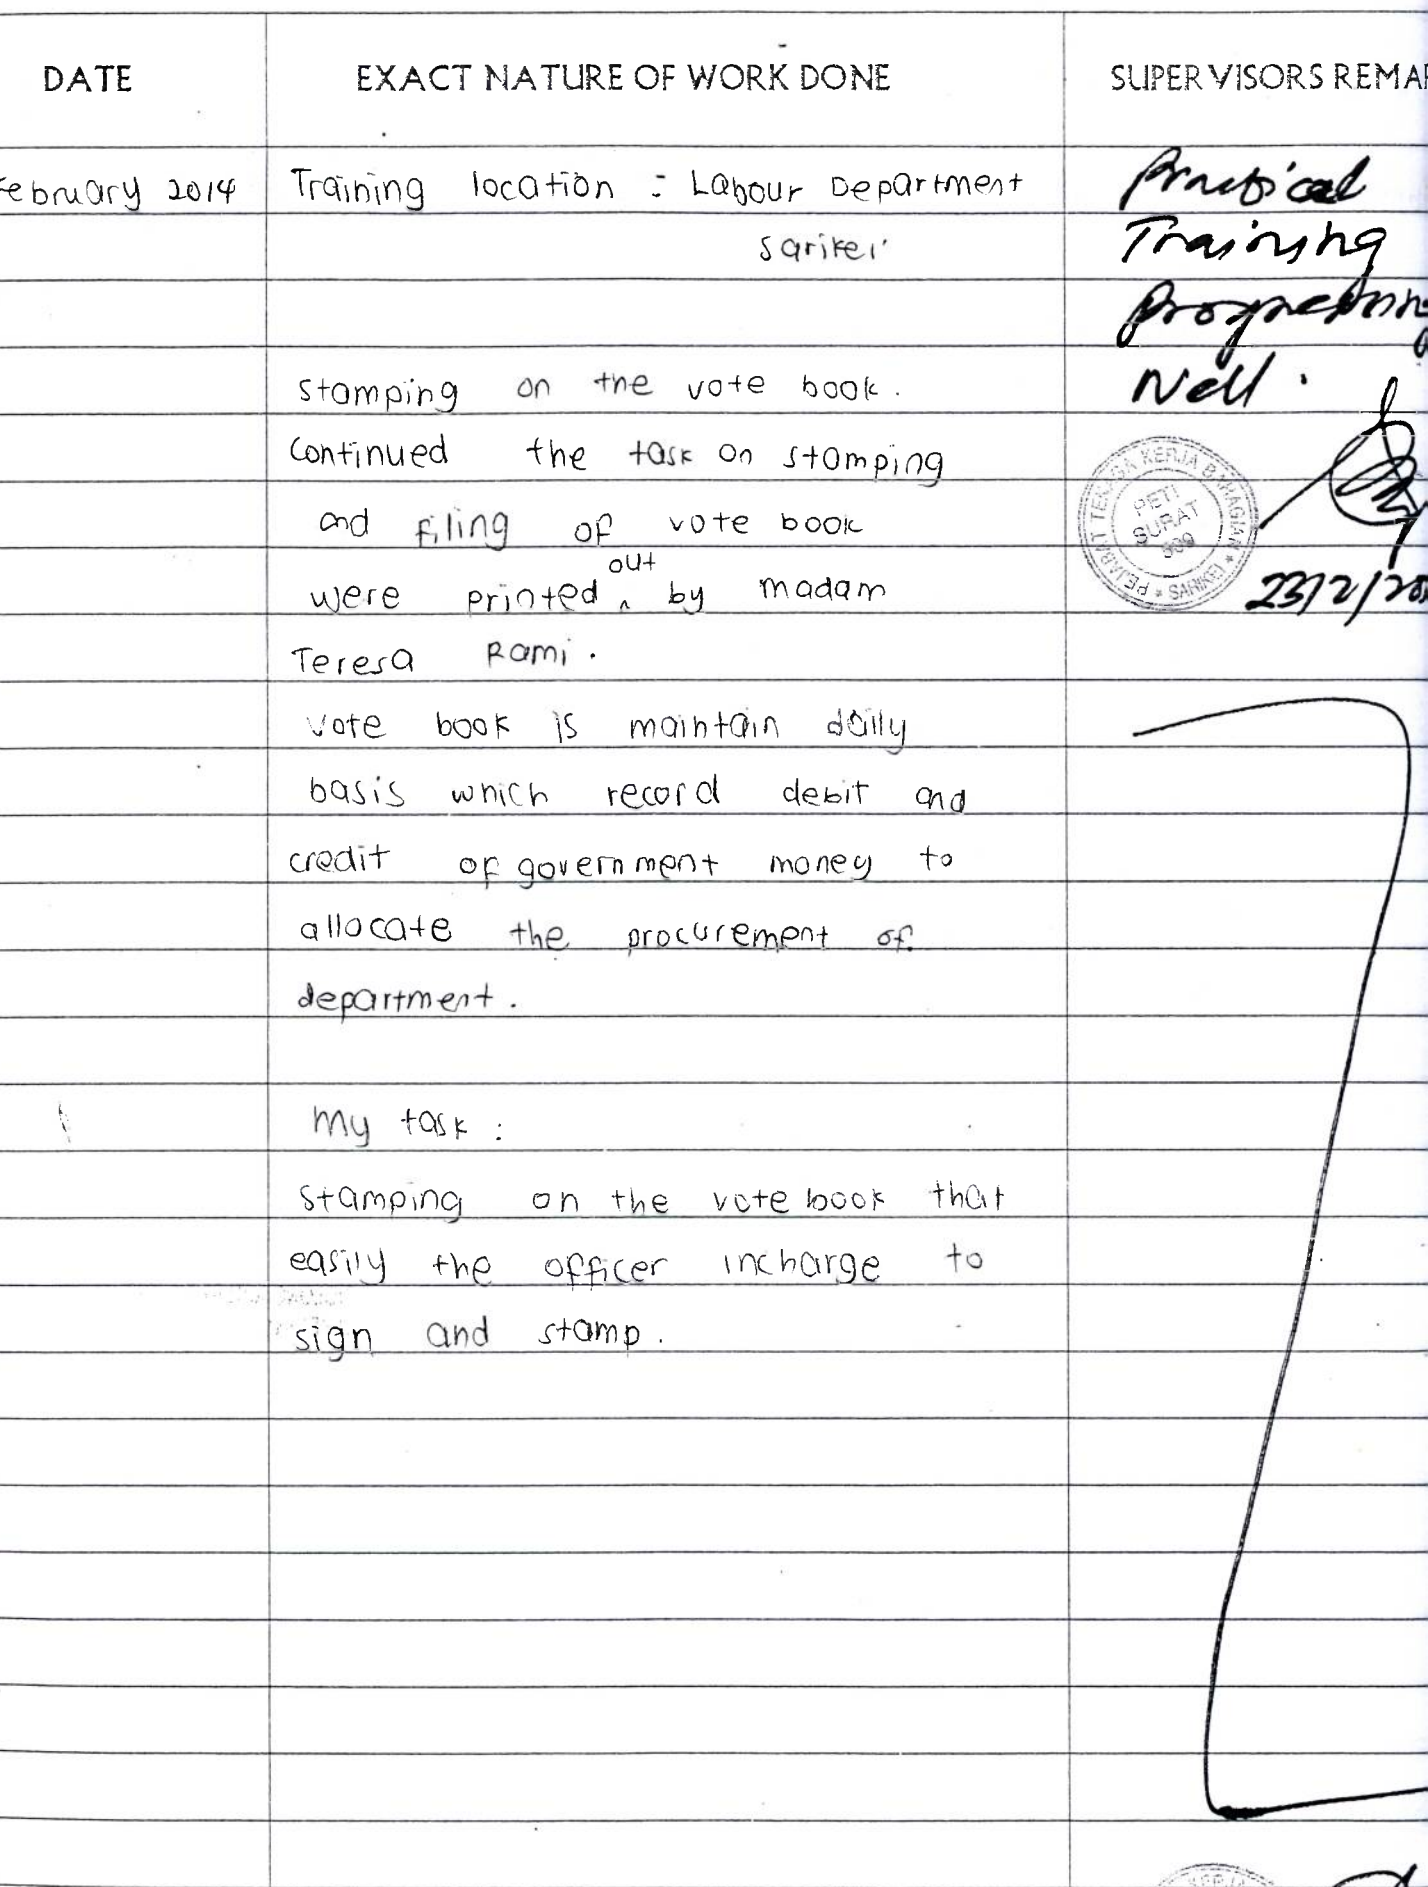 DATE EXACT NATURE OF WORK DONE SUPERVISORS REMA
February 2014 Training location : Labour Department Practical
Sarikei Training
Progressing
stamping on the vote book. Well.
Continued the task on stamping
and filing of vote book
were printed out by madam
Teresa Rami.
vote book is maintain daily
basis which record debit and
credit of government money to
allocate the procurement of
department.
My task :
stamping on the vote book that
easily the officer incharge to
sign and stamp.
PEJABAT TENAGA KERJA BAHAGIAN * SARIKEI *
PETI
SURAT
23/2/20